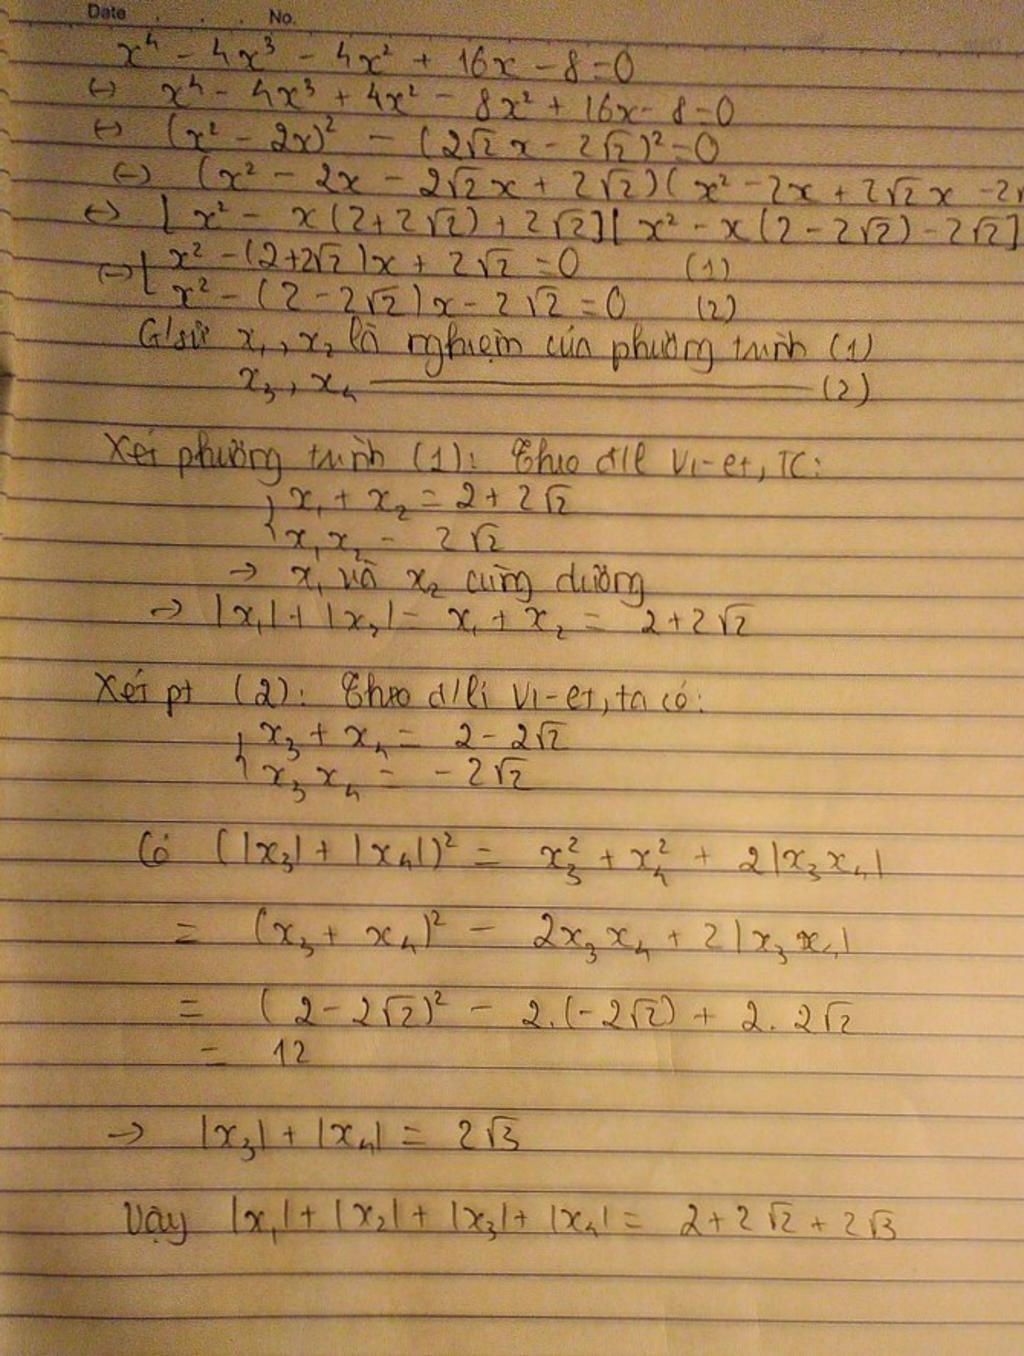 Date . . . No.
x⁴ - 4x³ - 4x² + 16x - 8 = 0
↔ x⁴ - 4x³ + 4x² - 8x² + 16x - 8 = 0
↔ (x² - 2x)² - (2√2 x - 2√2)² = 0
↔ (x² - 2x - 2√2x + 2√2)(x² - 2x + 2√2x - 2√
↔ [x² - x(2+2√2) + 2√2][x² - x(2 - 2√2) - 2√2]
↔ [ x² - (2+2√2)x + 2√2 = 0 (1)
x² - (2 - 2√2)x - 2√2 = 0 (2)
G/sử x₁, x₂ là nghiệm của phương trình (1)
x₃, x₄ ———————— (2)
Xét phương trình (1): Theo đ/l Vi-et, TC:
{ x₁ + x₂ = 2 + 2√2
x₁x₂ = 2√2
→ x₁ và x₂ cùng dương
→ |x₁| + |x₂| = x₁ + x₂ = 2+2√2
Xét pt (2): Theo đ/lí Vi-et, ta có:
{ x₃ + x₄ = 2 - 2√2
x₃x₄ = -2√2
Có (|x₃| + |x₄|)² = x₃² + x₄² + 2|x₃x₄|
= (x₃ + x₄)² - 2x₃x₄ + 2|x₃x₄|
= (2 - 2√2)² - 2.(-2√2) + 2.2√2
= 12
→ |x₃| + |x₄| = 2√3
Vậy |x₁| + |x₂| + |x₃| + |x₄| = 2+2√2+2√3